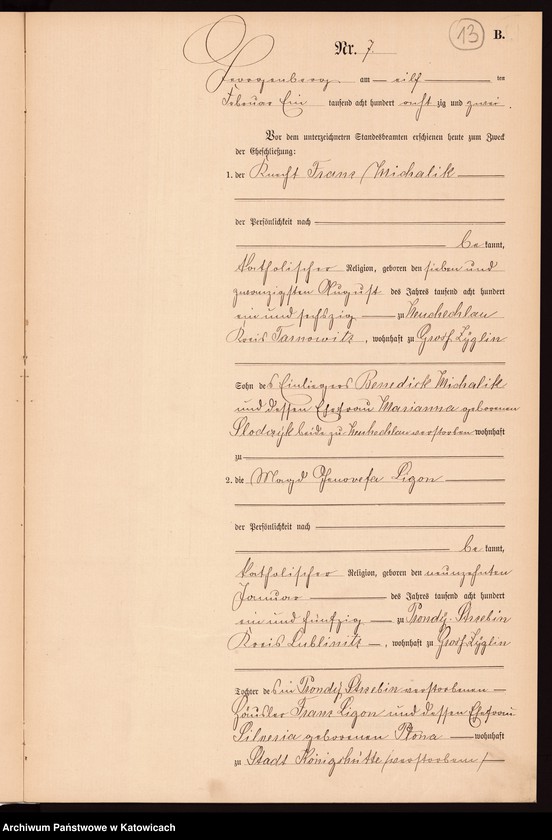 13 B.
Nr. 7.
Georgenberg am eilf ten
Februar Ein tausend acht hundert acht zig und zwei.
Vor dem unterzeichneten Standesbeamten erschienen heute zum Zweck
der Eheschließung:
1. der Knecht Franz Michalik
der Persönlichkeit nach
be kannt,
katholischer Religion, geboren den sieben und
zwanzigsten August des Jahres tausend acht hundert
ein und sechszig zu Neuhechlau
Kreis Tarnowitz, wohnhaft zu Groß Zyglin
Sohn des Einliegers Benedick Michalik
und dessen Ehefrau Marianna geborenen
beide zu Neuhechlau verstorben wohnhaft
zu
2. die Magd Genovefa Ligon
der Persönlichkeit nach
be kannt,
katholischer Religion, geboren den neunzehnten
Januar des Jahres tausend acht hundert
ein und fünfzig zu
Kreis Lublinitz, wohnhaft zu Groß Zyglin
Tochter des in verstorbenen
Häusler Franz Ligon und dessen Ehefrau
geborenen wohnhaft
zu Stadt Königshütte /verstorben/
Archiwum Państwowe w Katowicach